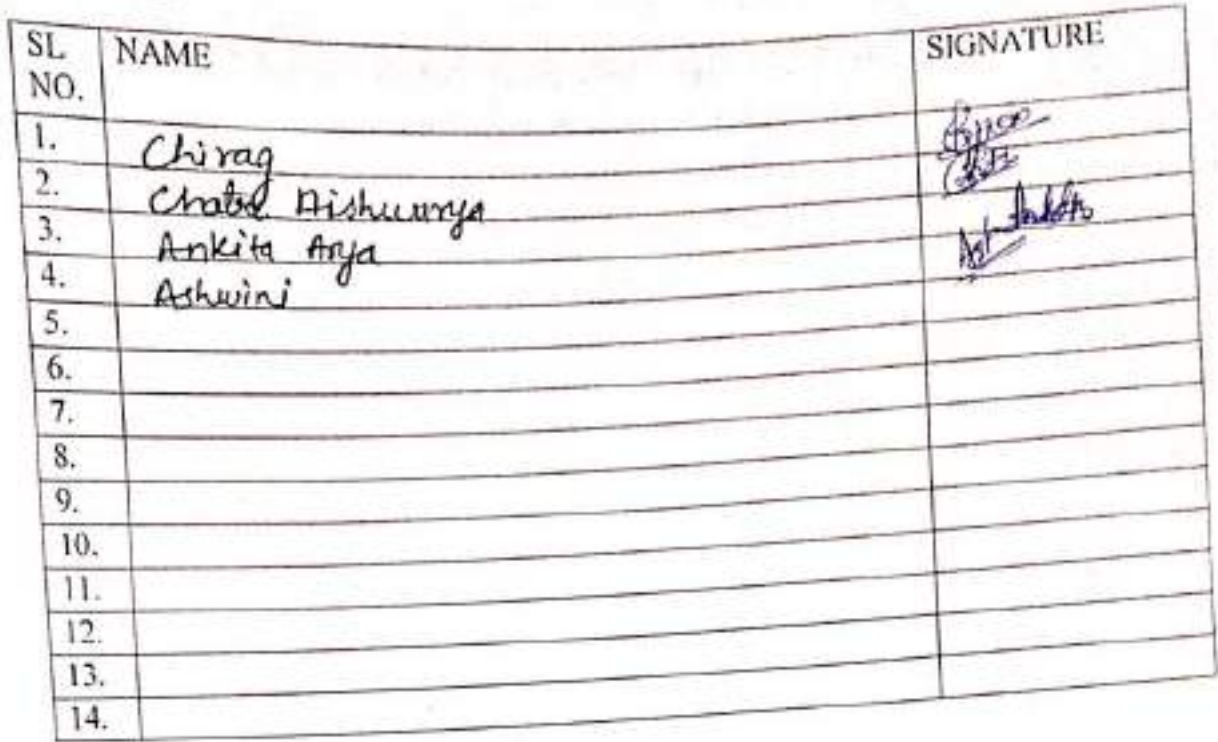 SL NO. NAME SIGNATURE
1. Chirag
2. Aishwarya
3. Ankita Arya
4. Ashwini
5.
6.
7.
8.
9.
10.
11.
12.
13.
14.